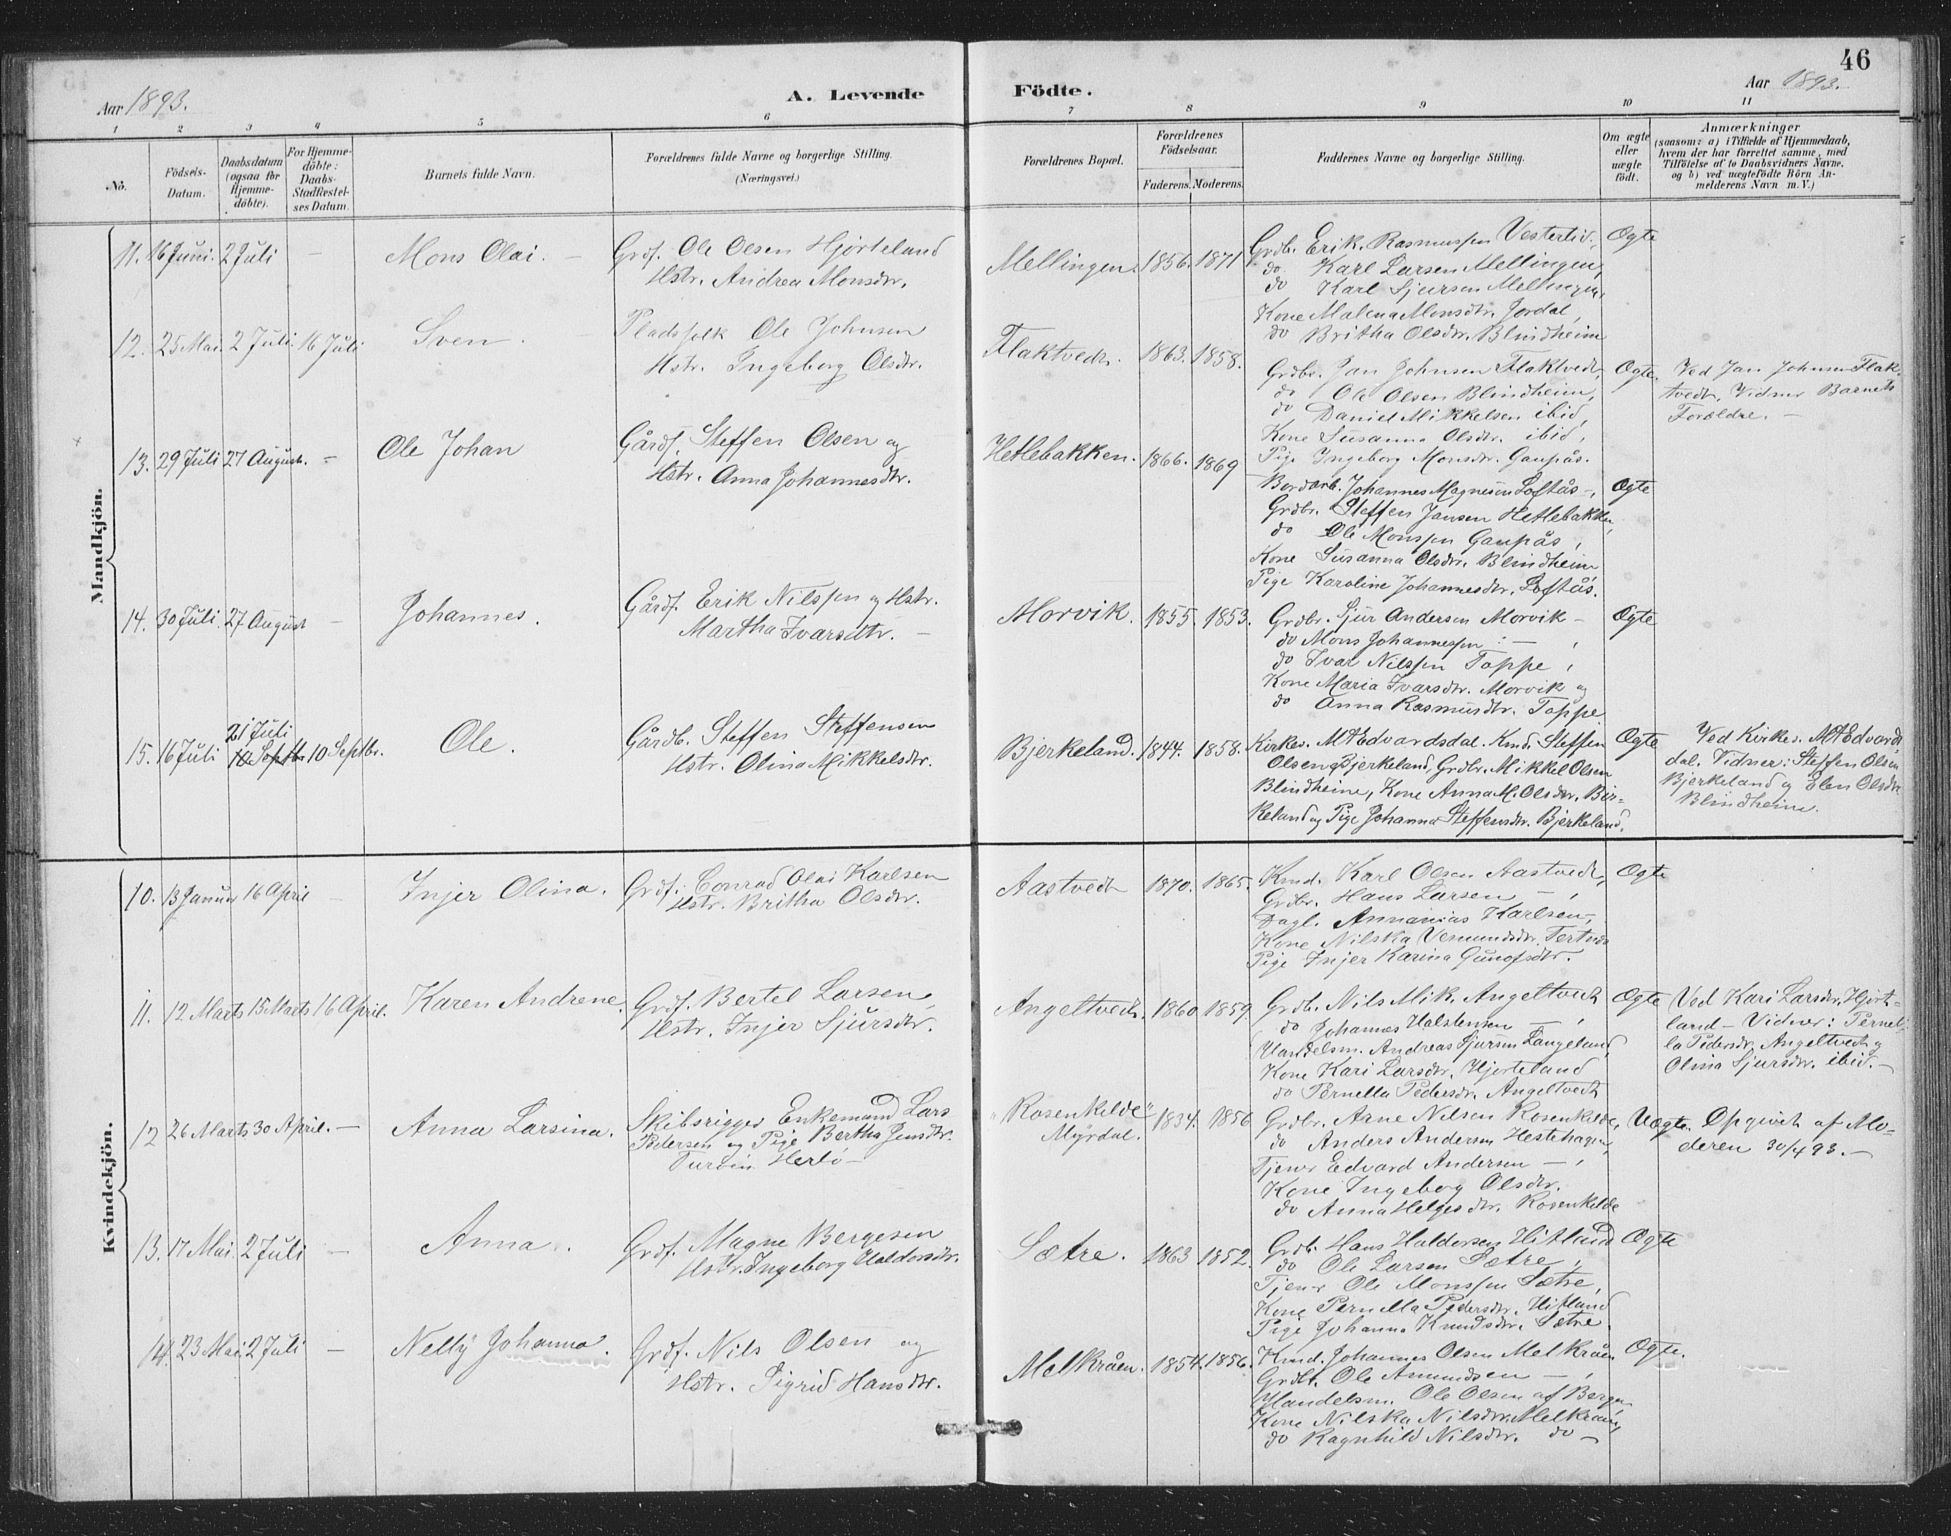 46
Aar 1893.
A. Levende Födte.
Aar 1893.
1 2 3 4 5 6 7 8 9 10 11
No.
Födsels-Datum.
Daabsdatum (ogsaa for Hjemme-döbte).
For Hjemme-döbte: Daabs-Stadfæstel-ses Datum.
Barnets fulde Navn.
Forældrenes fulde Navne og borgerlige Stilling.
(Næringsvei.)
Forældrenes Bopæl.
Forældrenes Födselsaar.
Faderens. Moderens.
Faddernes Navne og borgerlige Stilling.
Om ægte eller uægte født.
Anmærkninger
(saasom: a) i Tilfælde af Hjemmedaab,
hvem der har forrettet samme, med
Tilföielse af to Daabsvidners Navne,
og b) ved uægtefödte Börn An-
melderens Navn m. V.)
Mandkjön.
11. 16 Juni. 2 Juli — Mons Olai. —
Grdf. Ole Olsen Hjörteland
Hstr. Andrea Monsdtr.
Mellingen. 1856. 1871
Grdb. Erik Rasmussen Vestertid.,
do Karl Larsen Mellingen,
do Karl Sjursen Mellingen,
Kone Malena Monsdtr. Jordal,
do Britha Olsdtr. Blindheim
Ægte
12. 25 Mai. 2 Juli. 16 Juli Sven.
Pladsfolk Ole Johnsen
Hstr. Ingeborg Olsdtr.
Flaktvedt. 1863. 1858.
Grdbr. Jan Johnsen Flaktvedt,
do Ole Olsen Blindheim,
do Daniel Mikkelsen ibid,
Kone Susanna Olsdtr. ibid,
Pige Ingeborg Monsdtr. Gaupås.
Ægte.
Ved Jan Johnsen Flak-
tvedt, Vidner Barnets
Forældre. —
13. 29 Juli 27 August. — Ole Johan
Gårdf. Steffen Olsen og
Hstr. Anna Johannesdtr.
Hetlebakken. 1866. 1869
Bordarb. Johannes Magnesen Loftås —,
Grdbr. Steffen Jansen Hetlebakken,
do Ole Monssen Gaupås,
Kone Susanna Olsdtr. Blindheim
Pige Karoline Johannesdtr. Loftås.
Ægte
14. 30 Juli. 27 August — Johannes.
Gårdf. Erik Nilssen og Hstr.
Martha Ivarsdtr. —
Morvik. 1855 1853.
Grdbr. Sjur Andersen Morvik —
do Mons Johannessen — ,
do Ivar Nilssen Toppe,
Kone Maria Ivarsdtr. Morvik og
do Anna Rasmusdtr. Toppe.
Ægte
15. 16 Juli 21 Juli 10 Septbr. 10 Septbr. Ole.
Gårdb. Steffen Steffensen
Hstr. Olina Mikkelsdtr.
Bjerkeland. 1844. 1858.
Kirkes. M A Edvardsdal. Kmd. Steffen
Olsen Bjerkeland, Grdbr. Mikkel Olsen
Blindheim, Kone Anna M. Olsdtr. Bir-
keland og Pige Johanna Steffensdtr. Bjerkeland.
Ægte
Ved Kirkes. M A Edvards
dal. Vidner: Steffen Olsen
Bjerkeland og Elen Olsdtr
Blindheim.
Kvindekjön.
10. 13 Januar 16 April — Injer Olina.
Grdf. Conrad Olai Karlsen
Hstr. Britha Olsdtr.
Aastvedt 1870. 1865.
Kmd. Karl Olsen Aastvedt,
Grdbr. Hans Larsen — ,
Dagl. Annanias Karlsen —,
Kone Nilska Vemundsdtr. Tertnes
Pige Injer Karina Gunofsdtr.
Ægte
11. 12 Marts 15 Marts 16 April. Karen Andrene.
Grdf. Bertel Larsen,
Hstr. Injer Sjursdtr.
Angeltvedt. 1860 1859
Grdb. Nils Mik. Angeltvedt
do Johannes Halstensen — ,
Handelsm. Andreas Sjursen Langeland,
Kone Kari Larsdtr. Hjorteland
do Pernella Pedersdtr. Angeltvedt
Ægte
Ved Kari Larsdtr. Hjort-
land — Vidner: Pernel-
la Pedersdtr. Angeltvedt og
Olina Sjursdtr. ibid. —
12 26 Marts 30 April. — Anna Larsina.
Skibsrigger Enkemand Lars
Pedersen og Pige Bertha Jensdtr.
Herlö —
"Rosenkilde"
Myrdal. 1834. 1856
Grdbr. Arne Nilsen Rosenkilde,
do Anders Andersen Hestehagen,
Tjener Edvard Andersen — ,
Kone Ingeborg Olsdtr.
do Anna Helgesdtr. Rosenkilde
Uægte.
Opgivet af Mo-
deren 30/4 93. —
13. 17 Mai. 2 Juli — Anna.
Grdf. Magne Bergesen
Hstr. Ingeborg Haldorsdtr.
Sætre. 1863 1852.
Grdb. Hans Haldorsen Hitland
do Ole Larsen Sætre,
Tjener Ole Monssen Sætre,
Kone Pernella Pedersdtr. Hitland
Pige Johanna Knudsdtr. Sætre.
Ægte
14. 23 Mai 2 Juli — Nelly Johanna.
Grdf. Nils Olsen og
Hstr. Sigrid Hansdtr.
Melkråen. 1854. 1856.
Kmd. Johannes Olsen Melkråen
Grdbr. Ole Amundsen — ,
Handelsm. Ole Olsen af Bergen
Kone Nilska Nilsdtr. Melkråen,
do Ragnhild Nilsdtr. do —
Ægte.